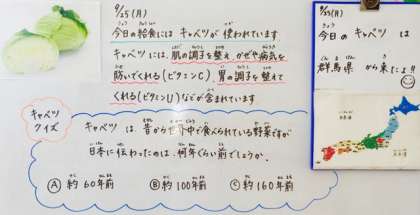 9/25(月)
今日の給食にはキャベツが使われています
キャベツには、肌の調子を整え かぜや病気を
防いでくれる(ビタミンC)、胃の調子を整えて
くれる(ビタミンU)などが含まれています
キャベツ
クイズ
キャベツは、昔から世界中で食べられている野菜ですが
日本に伝わったのは、何年ぐらい前でしょうか。
Ⓐ 約60年前 Ⓑ 約100年前 Ⓒ 約160年前
9/25(月)
きょう
今日の キャベツ は
ぐんまけん
群馬県 から 来たよ!!